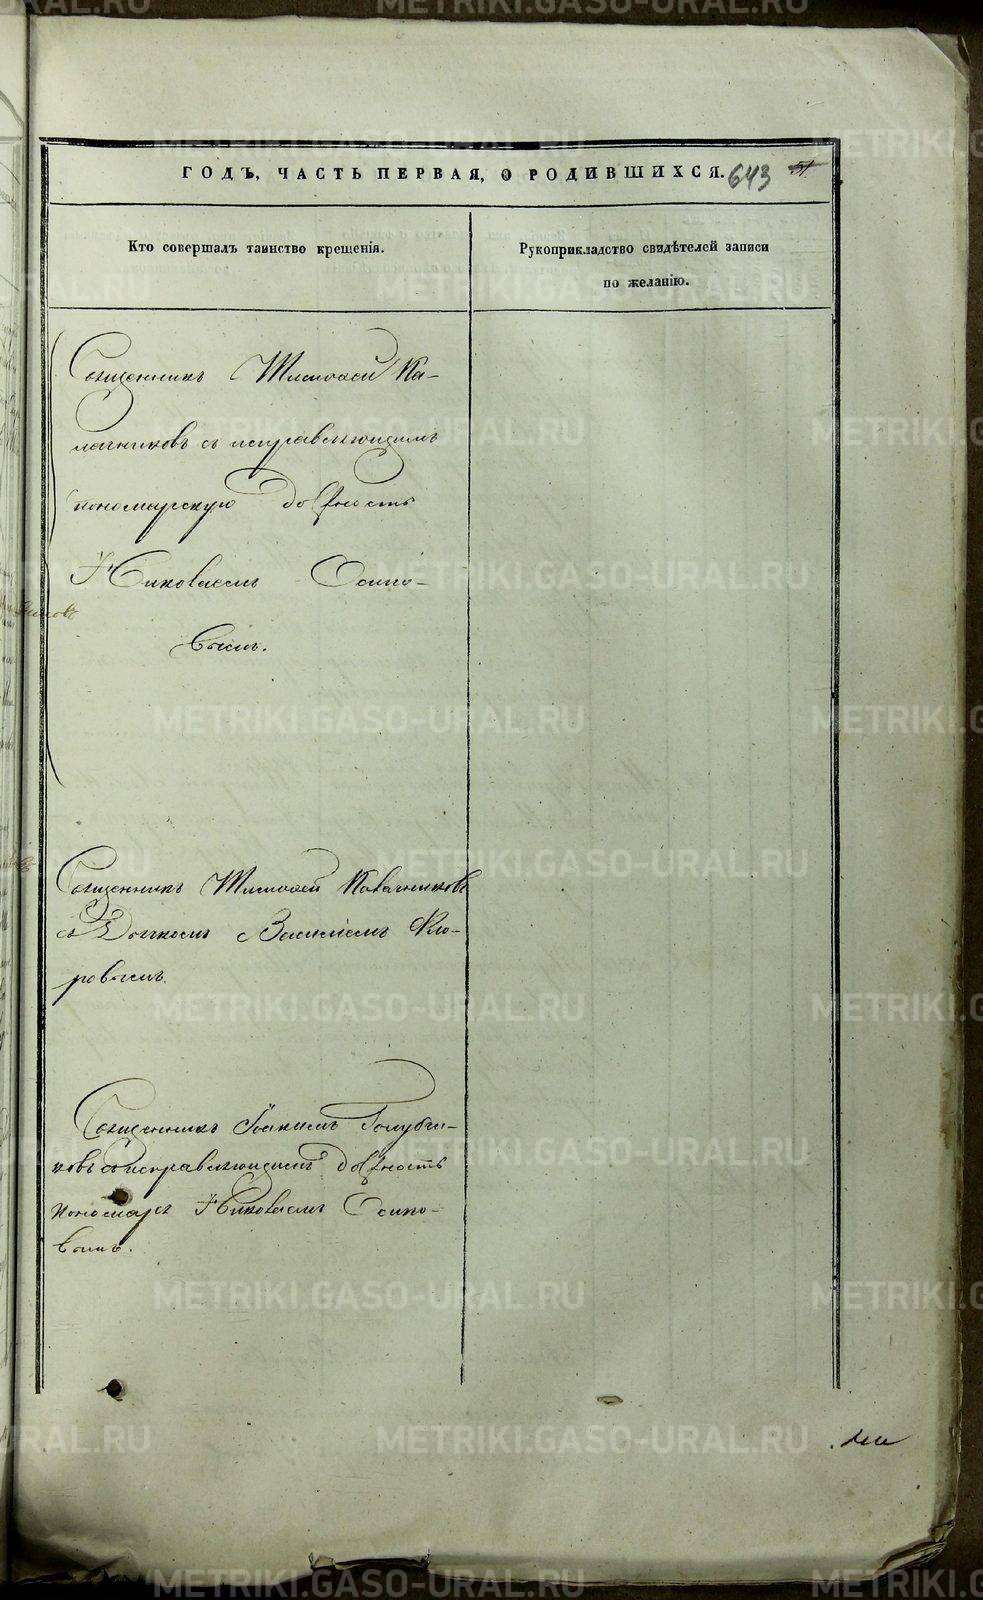 ГОДЪ, ЧАСТЬ ПЕРВАЯ, О РОДИВШИХСЯ. 643 51
Кто совершалъ таинство крещенія.
Рукоприкладство свидѣтелей записи
по желанію.
Священникъ Тимофей Ка-
лачниковъ съ исправляющимъ
пономарскую должность
Николаемъ Осипо-
вымъ.
Священникъ Тимофей Калачниковъ
съ Дьячкомъ Василіемъ Фло-
ровымъ.
Священникъ Іоакимъ Голубчи-
ковъ съ исправляющимъ должность
пономаря Николаемъ Осипо-
вымъ.
METRIKI.GASO-URAL.RU